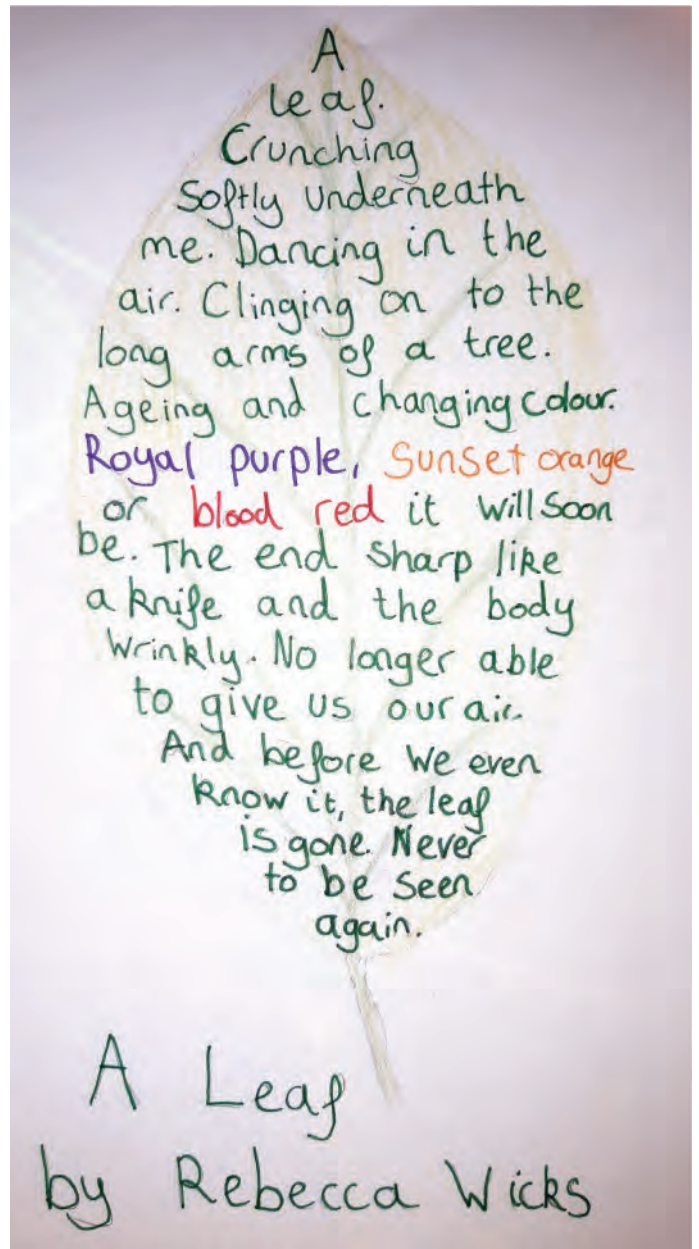 A
leaf.
Crunching
Softly underneath
me. Dancing in the
air. Clinging on to the
long arms of a tree.
Ageing and changing colour.
Royal purple, Sunset orange
or blood red it will soon
be. The end sharp like
a knife and the body
wrinkly. No longer able
to give us our air.
And before we even
know it, the leaf
is gone. Never
to be seen
again.
A Leaf
by Rebecca Wicks